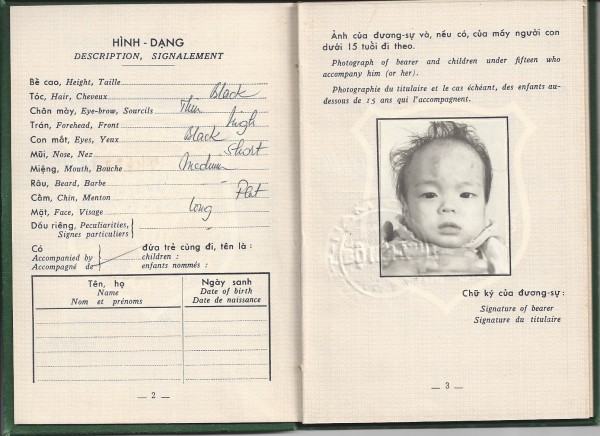 HÌNH - DẠNG
DESCRIPTION, SIGNALEMENT
Bề cao, Height, Taille
Tóc, Hair, Cheveux Black
Chân mày, Eye-brow, Sourcils Thin
Trán, Forehead, Front high
Con mắt, Eyes, Yeux Black
Mũi, Nose, Nez Short
Miệng, Mouth, Bouche medium
Râu, Beard, Barbe
Cằm, Chin, Menton Flat
Mặt, Face, Visage long
Dấu riêng, Peculiarities,
Signes particuliers
Có
Accompanied by
Accompagné de
đứa trẻ cùng đi, tên là :
children :
enfants nommés :
Tên, họ
Name
Nom et prénoms
Ngày sanh
Date of birth
Date de naissance
— 2 —
Ảnh của đương-sự và, nếu có, của mấy người con
dưới 15 tuổi đi theo.
Photograph of bearer and children under fifteen who
accompany him (or her).
Photographie du titulaire et le cas échéant, des enfants au-
dessous de 15 ans qui l'accompagnent.
Chữ ký của đương-sự :
Signature of bearer
Signature du titulaire
— 3 —